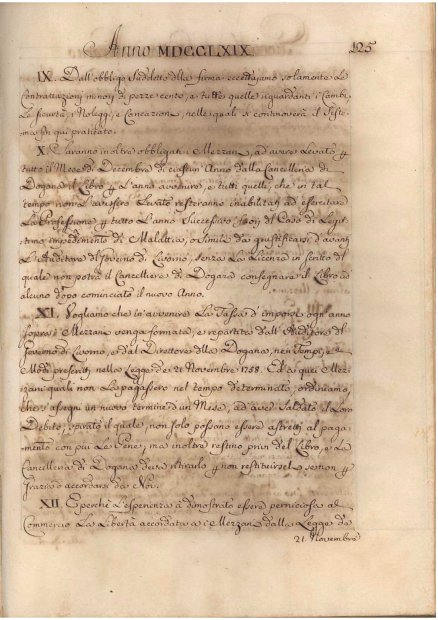 Anno MDCCLXIX. 125
IX. Dall'obbligo suddetto della firma eccettuiamo solamente le
Contrattazioni minori di pezze cento, e tutte quelle riguardanti i Cambi,
Le sicurtà, i Noleggi, e Concazioni, nelle quali si continoverà il siste-
ma fin qui praticato.
X. Saranno inoltre obbligati i Mezzani, ad avere levato p
tutto il Mese di Decembre di ciascun Anno dalla Cancelleria di
Dogana il Libro p L'anno avvenire, e tutti quelli, che in tal
tempo non L'avessero levato resteranno inabilitati ad esercitare
La Professione p tutto L'anno successivo, fuori del Caso di Legit-
timo impedimento di Malattia, o simile da giustificarsi d'avanti
L'Auditore del Governo di Livorno, senza La Licenza in scritto del
quale non potrà il Cancelliere di Dogana consegnare il Libro ad
alcuno dopo cominciato il nuovo Anno.
XI. Vogliamo che in avvenire La Tassa d'imporsi ogni anno
sopra i Mezzani venga formata, e repartita dall'Auditore del
Governo di Livorno, e dal Direttore della Dogana, nei Tempi, e
Modi prescritti nella Legge dei 21 Novembre 1758. Ed a quei Mez-
zani quali non La pagassero nel tempo determinato, ordiniamo,
che s'assegni un nuovo termine d'un Mese, ad aver saldato il Loro
Debito, spirato il quale, non solo possano essere astretti al paga-
mento con più Le Pene, ma inoltre restino privi del Libro, e La
Cancelleria di Dogana deva ritirarlo p non restituirsel se non p
Grazia accordarsi da Noi.
XII. E perchè L'esperienza à dimostrato essere perniciosa al
Commercio La Libertà accordata a i Mezzani dalla Legge de
21. Novembre